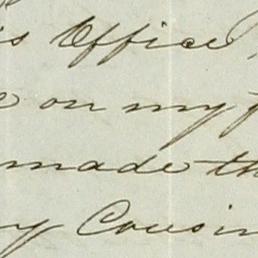 is Office
e on my f
made th
y Cousin